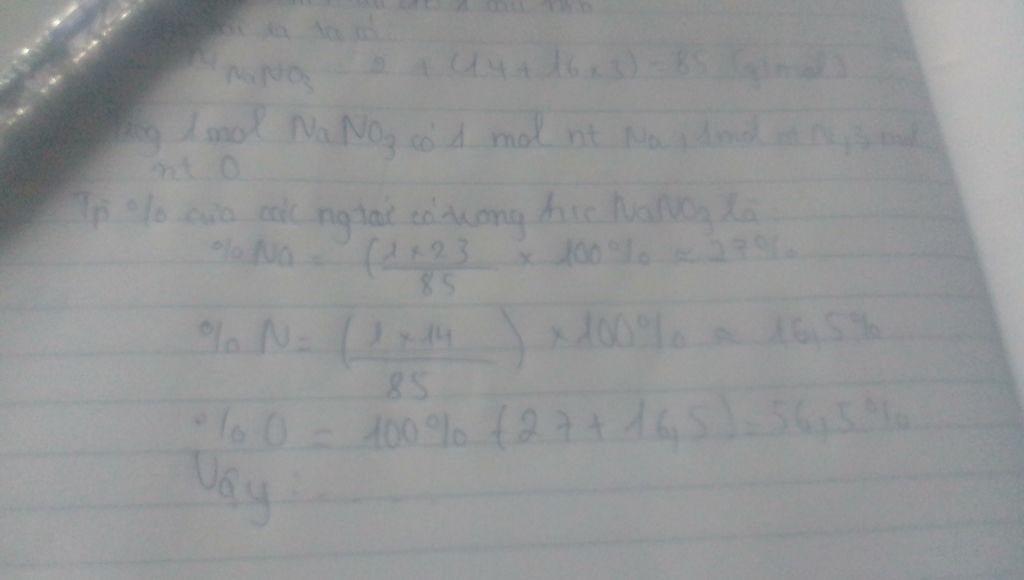 ta có
NaNO3 = 2 + (14 + 16 x 3) = 85 (g/mol)
1 mol NaNO3 có 1 mol nt Na, 1 mol nt N, 3 mol
nt O
Tp % của các ng tố có trong NaNO3 là
% Na = (1 x 23 / 85 x 100% ≈ 27%
% N = (1 x 14 / 85) x 100% ≈ 16,5%
% O = 100% - (27 + 16,5) = 56,5%
Vậy : ........